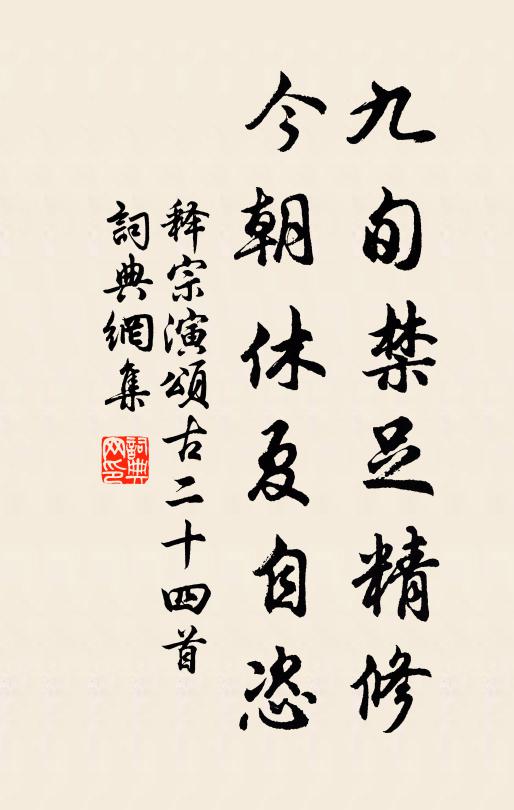 九旬禁足精修
今朝休夏自恣
释宗演頌古二十四首
詞典網集
詞典網印